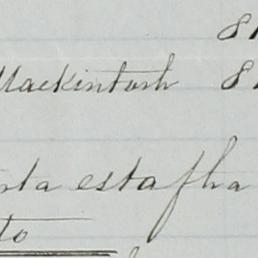 8
Mackintosh 8
sta estafha
to